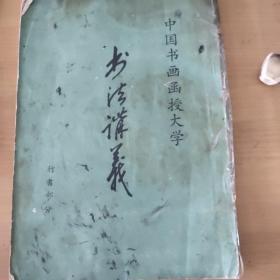 中国书画函授大学
书法讲义
行书部分